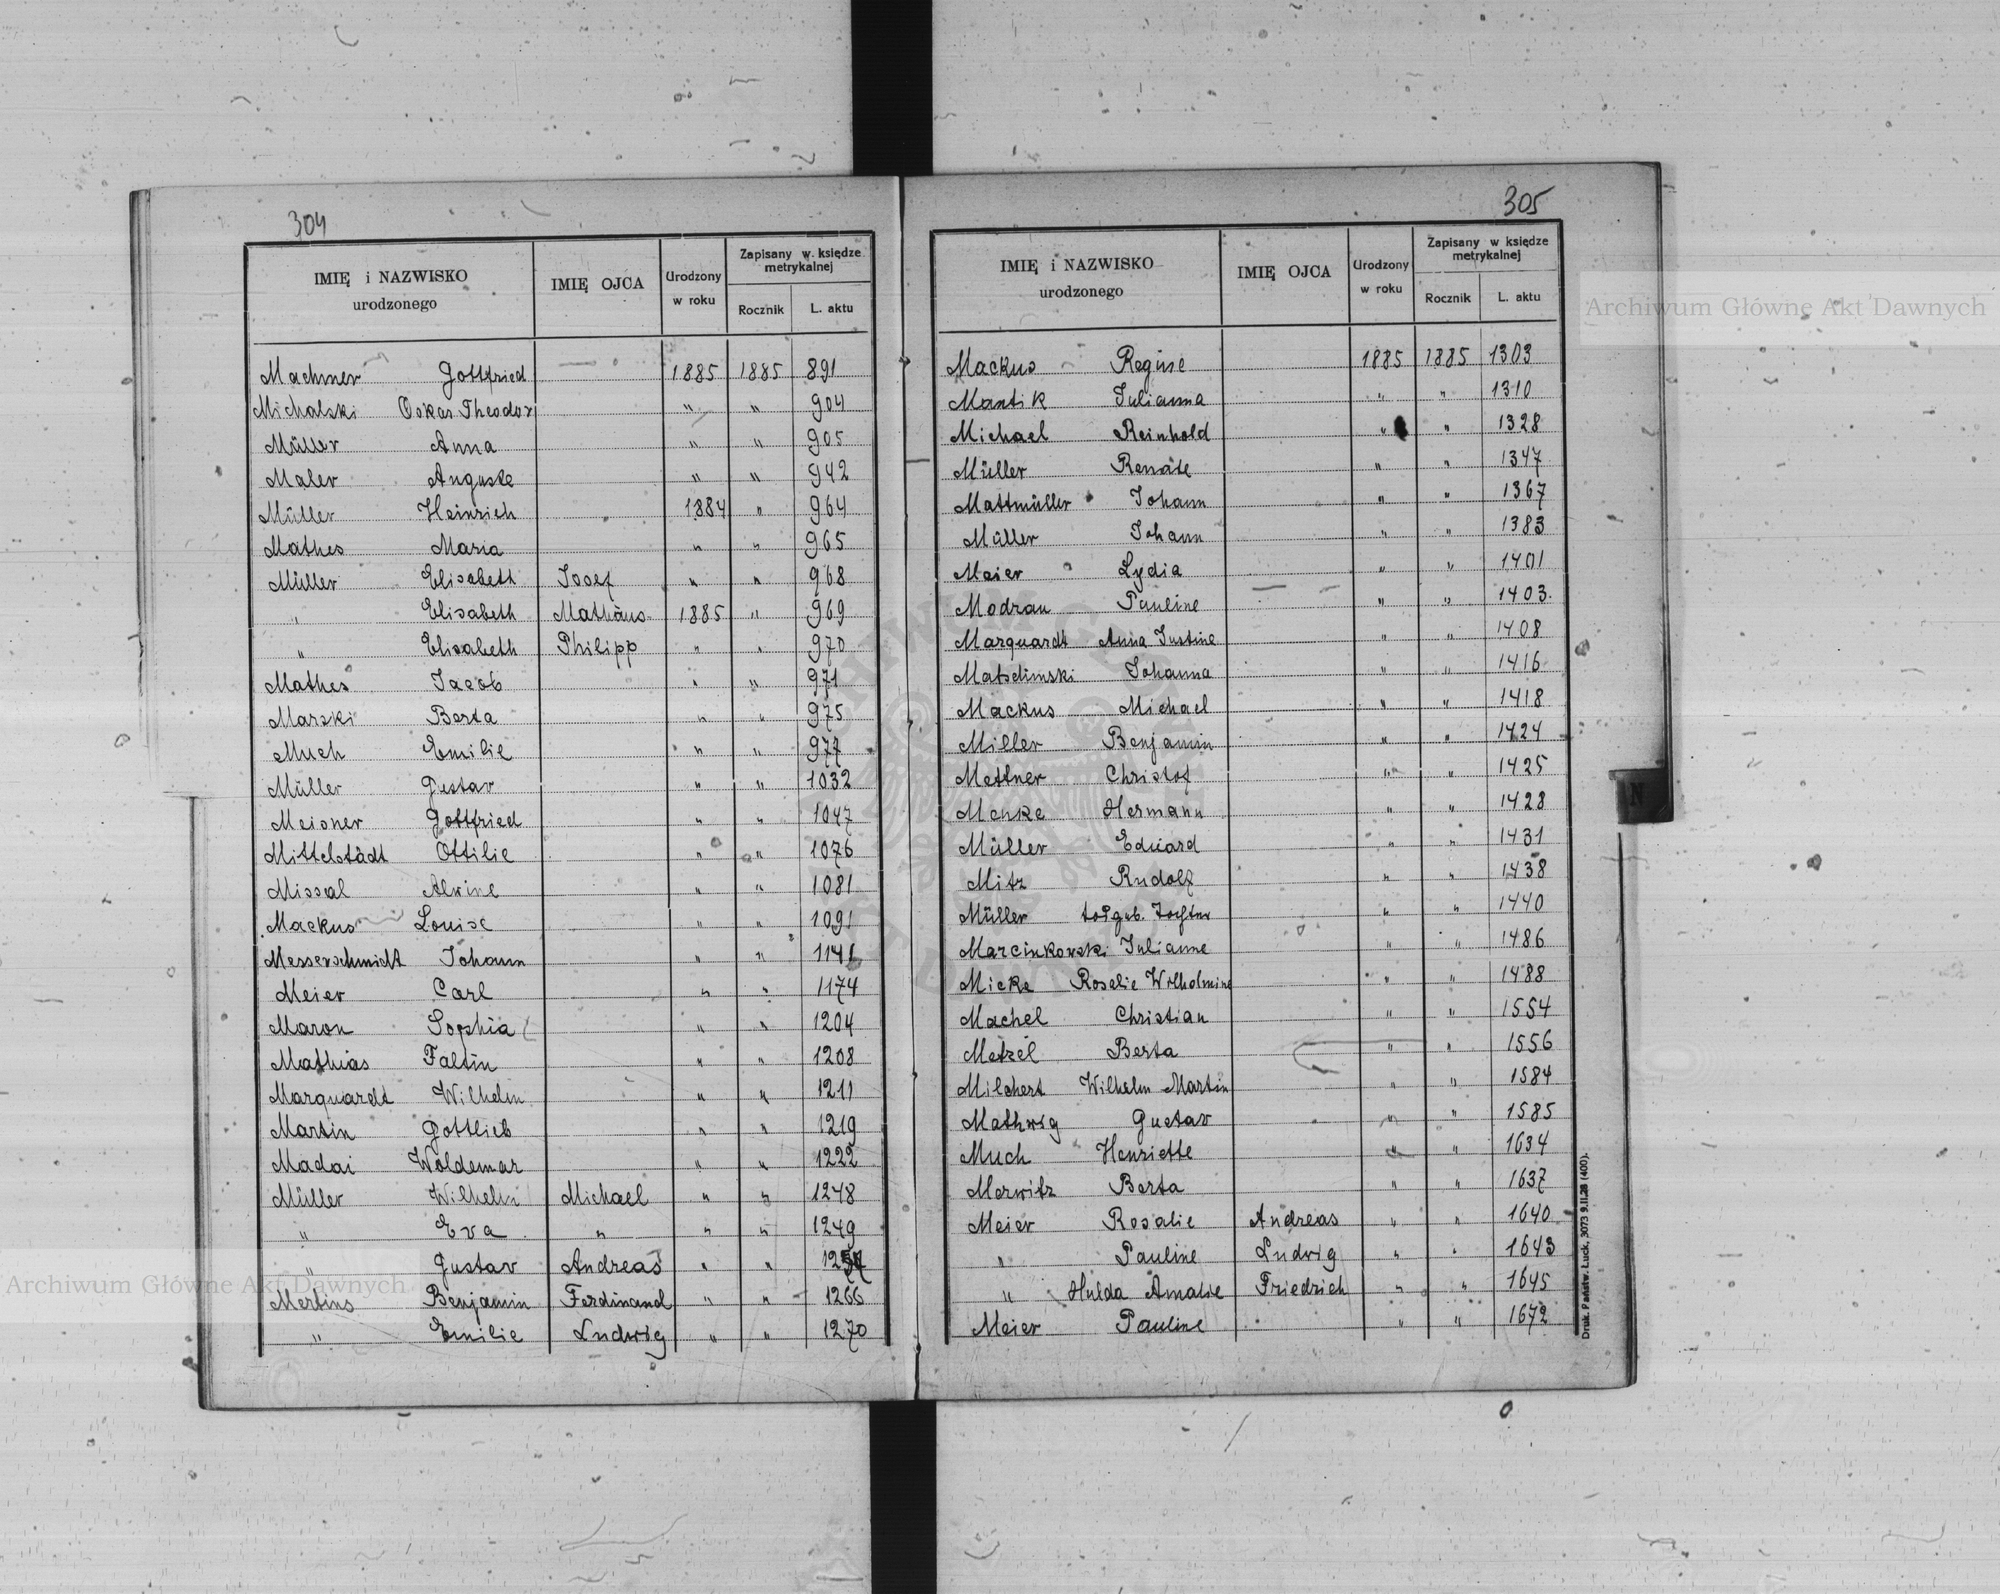 304
IMIĘ i NAZWISKO urodzonego | IMIĘ OJCA | Urodzony w roku | Zapisany w. księdze metrykalnej
Rocznik | L. aktu
Machner Gottfried 1885 1885 891
Michalski Oskar Theodor " " 904
Müller Anna " " 905
Maler Auguste " " 942
Müller Heinrich 1884 " 964
Mathes Maria " " 965
Müller Elisabeth Josef " " 968
" Elisabeth Mathäus 1885 " 969
" Elisabeth Philipp " " 970
Mathes Jacob " " 971
Marski Berta " " 975
Much Emilie " " 977
Müller Gustav " " 1032
Meisner Gottfried " " 1047
Mittelstädt Ottilie " " 1076
Missal Alvine " " 1081
Mackus Louise " " 1091
Messerschmidt Johann " " 1141
Meier Carl " " 1174
Maron Sophia " " 1204
Mathias Faltin " " 1208
Marquardt Wilhelm " " 1211
Martin Gottlieb " " 1219
Madai Woldemar " " 1222
Müller Wilhelm Michael " " 1248
" Eva " " " 1249
" Gustav Andreas " "
Mertins Benjamin Ferdinand " " 1266
" Emilie Ludwig " " 1270
305
IMIĘ i NAZWISKO urodzonego | IMIĘ OJCA | Urodzony w roku | Zapisany w księdze metrykalnej
Rocznik | L. aktu
Mackus Regine 1885 1885 1303
Mantik Julianna " " 1310
Michael Reinhold " " 1328
Müller Renate " " 1347
Mattmüller Johann " " 1367
Müller Johann " " 1383
Meier Lydia " " 1401
Modrau Pauline " " 1403
Marquardt Anna Justine " " 1408
Matschinski Johanna " " 1416
Mackus Michael " " 1418
Miller Benjamin " " 1424
Mettner Christof " " 1425
Menke Hermann " " 1428
Müller Eduard " " 1431
Mitz Rudolf " " 1438
Müller totgeb. Tochter " " 1440
Marcinkowski Julianne " " 1486
Micke Rosalie Wilhelmine " " 1488
Machel Christian " " 1554
Metzel Berta " " 1556
Milchert Wilhelm Martin " " 1584
Mathwig Gustav " " 1585
Much Henriette " " 1634
Merwitz Berta " " 1637
Meier Rosalie Andreas " " 1640
" Pauline Ludwig " " 1643
" Hulda Amalie Friedrich " " 1645
Meier Pauline " " 1672
Druk. Państw. Łuck, 3073 9.II.28 (400).
Archiwum Główne Akt Dawnych
Archiwum Główne Akt Dawnych
N